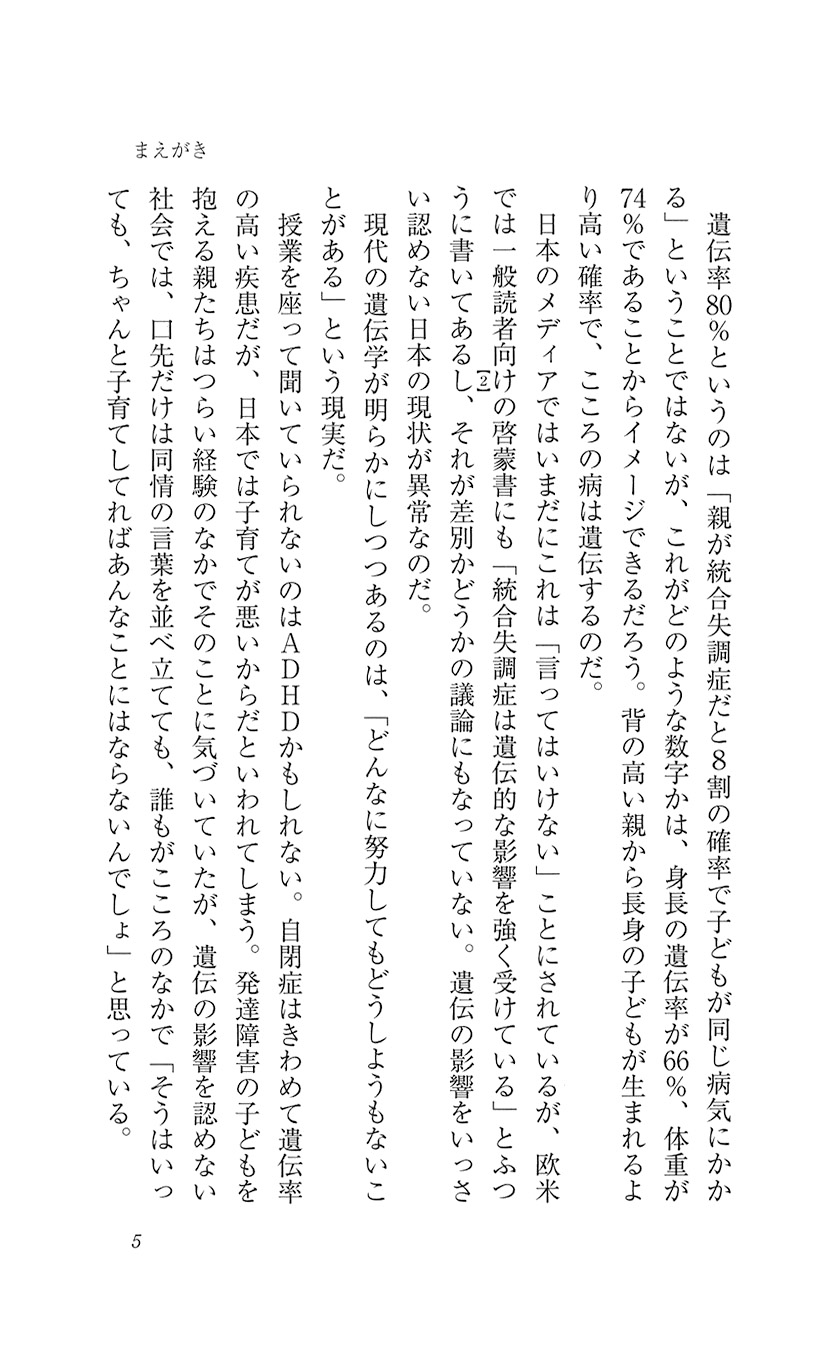 まえがき
　遺伝率80％というのは「親が統合失調症だと8割の確率で子どもが同じ病気にかか
る」ということではないが、これがどのような数字かは、身長の遺伝率が66％、体重が
74％であることからイメージできるだろう。背の高い親から長身の子どもが生まれるよ
り高い確率で、こころの病は遺伝するのだ。
　日本のメディアではいまだにこれは「言ってはいけない」ことにされているが、欧米
では一般読者向けの啓蒙書にも「統合失調症は遺伝的な影響を強く受けている」とふつ
うに書いてあるし[2]、それが差別かどうかの議論にもなっていない。遺伝の影響をいっさ
い認めない日本の現状が異常なのだ。
　現代の遺伝学が明らかにしつつあるのは、「どんなに努力してもどうしようもないこ
とがある」という現実だ。
　授業を座って聞いていられないのはADHDかもしれない。自閉症はきわめて遺伝率
の高い疾患だが、日本では子育てが悪いからだといわれてしまう。発達障害の子どもを
抱える親たちはつらい経験のなかでそのことに気づいていたが、遺伝の影響を認めない
社会では、口先だけは同情の言葉を並べ立てても、誰もがこころのなかで「そうはいっ
ても、ちゃんと子育てしてればあんなことにはならないんでしょ」と思っている。
5